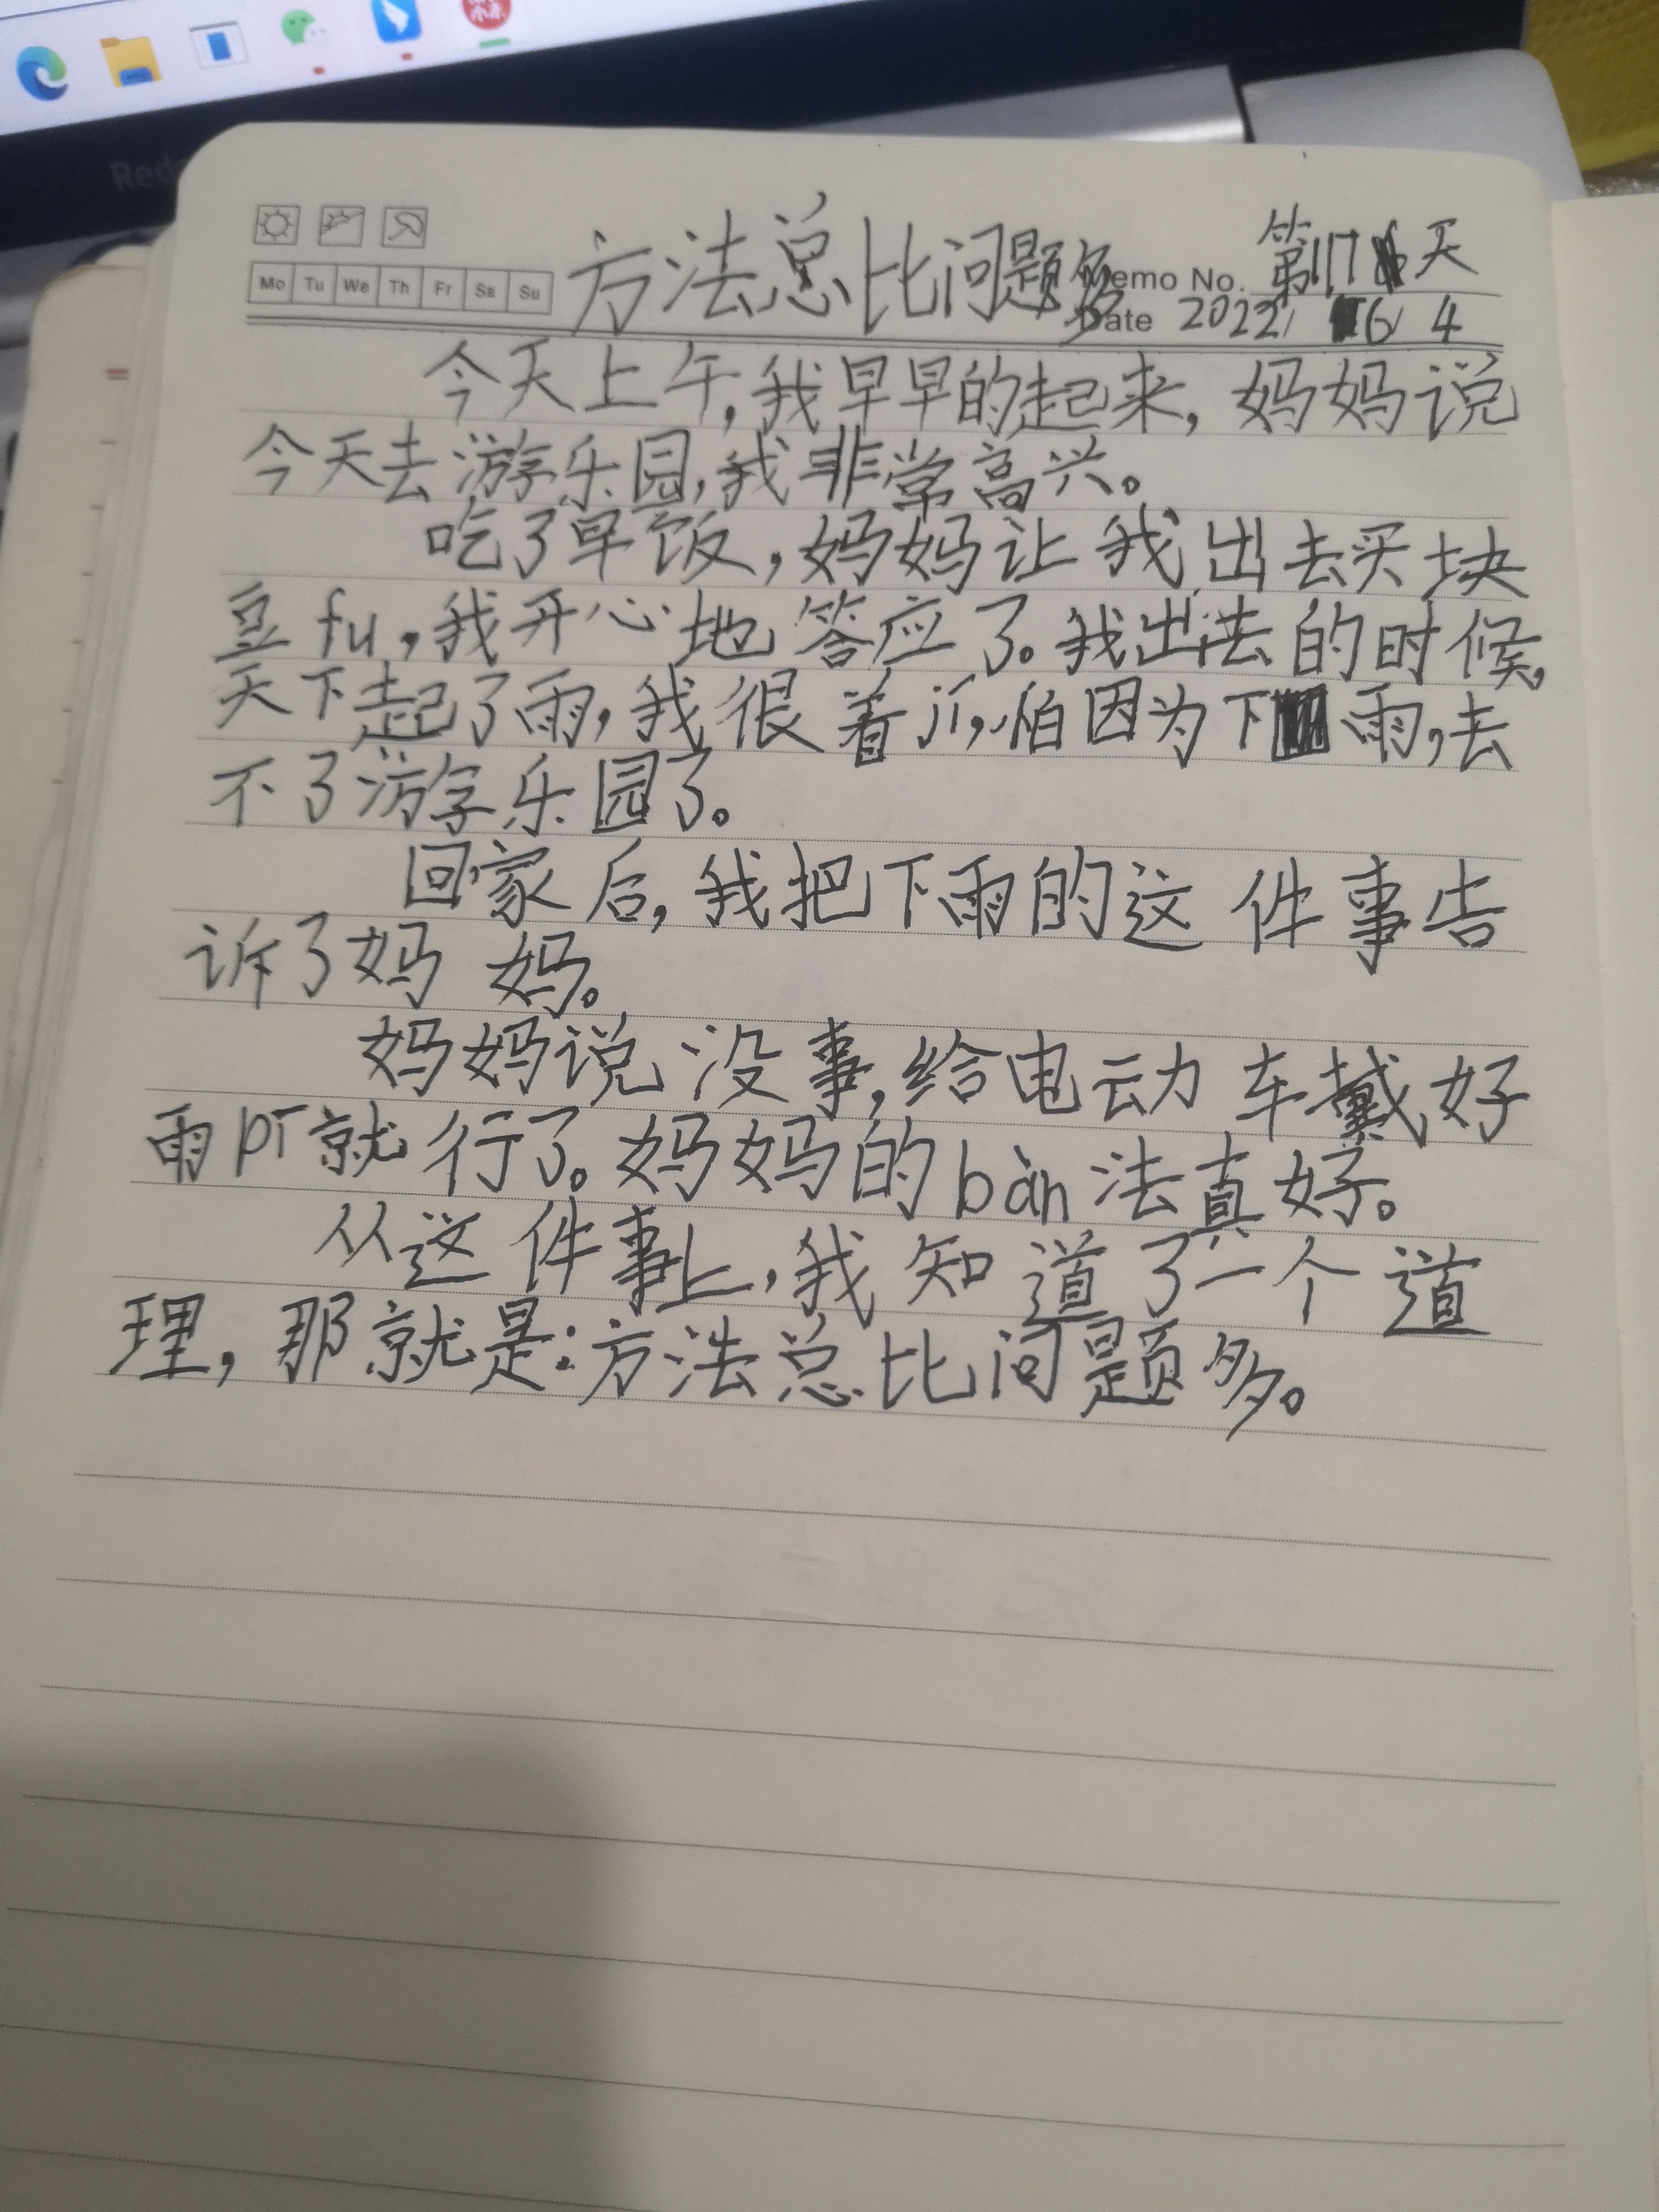 Mo Tu We Th Fr Sa Su
方法总比问题多
Memo No. 第117天
Date 2022/ 6/ 4
今天上午,我早早的起来,妈妈说
今天去游乐园,我非常高兴。
吃了早饭,妈妈让我出去买块
豆fu,我开心地答应了。我出去的时候,
天下起了雨,我很着jí,怕因为下雨,去
不了游乐园了。
回家后,我把下雨的这件事告
诉了妈妈。
妈妈说没事,给电动车戴好
雨pī就行了。妈妈的bàn法真好。
从这件事上,我知道了一个道
理,那就是:方法总比问题多。